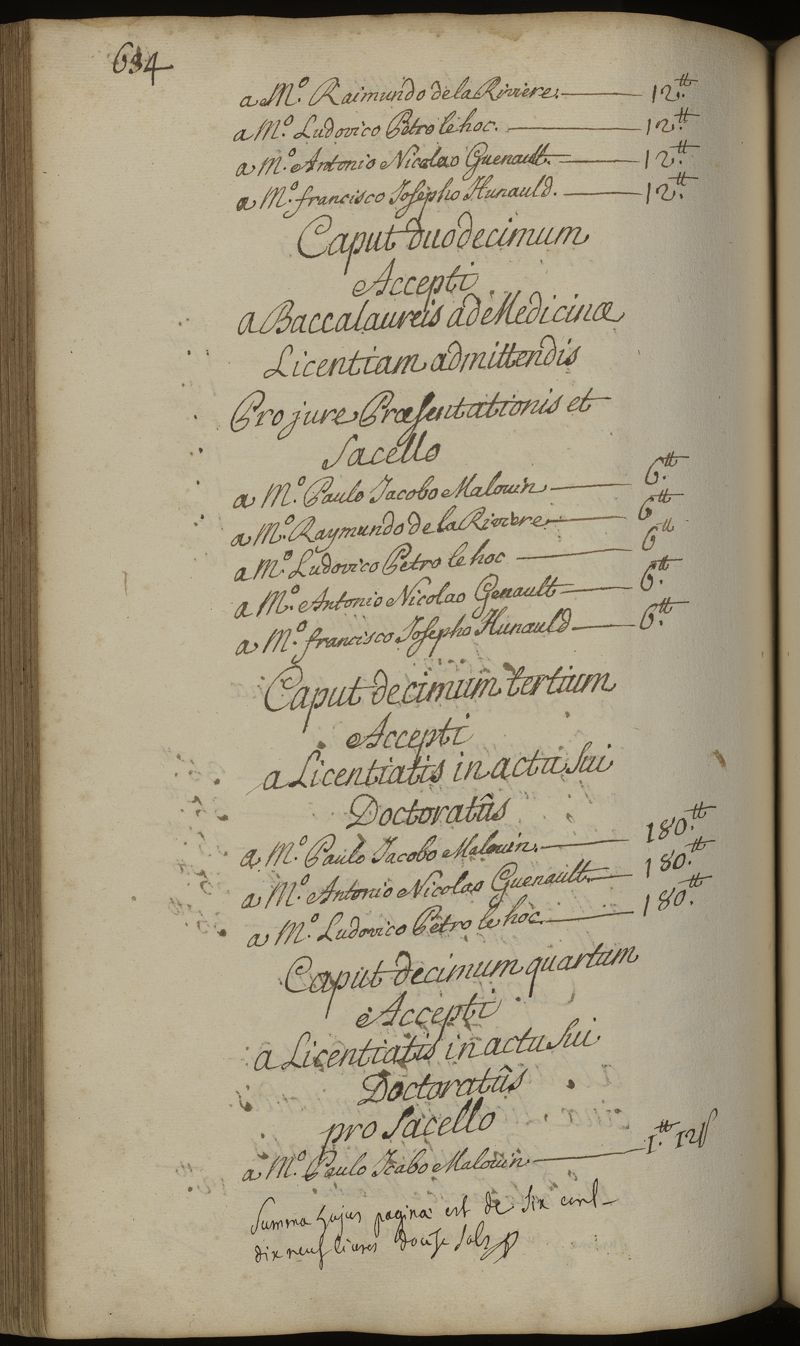 634
a M.º Raimundo de la Riviere. — 12.tt
a M.º Ludovico Petro le hoc. — 12.tt
a M.º Antonio Nicolao Guenault. — 12.tt
a M.º francisco Josepho Hunauld. — 12.tt
Caput duodecimum
Accepti
a Baccalaureis ad Medicinæ
Licentiam admittendis
Pro jure Præsentationis et
Sacello
a M.º Paulo Jacobo Malouin — 6.tt
a M.º Raymundo de la Riviere — 6tt
a M.º Ludovico Petro le hoc — 6tt
a M.º Antonio Nicolao Genault — 6.tt
a M.º francisco Josepho Hunauld — 6.tt
Caput decimum tertium
Accepti
a Licentiatis in actu sui
Doctoratûs
a M.º Paulo Jacobo Malouin. — 180.tt
a M.º Antonio Nicolao Guenault. — 180.tt
a M.º Ludovico Petro le hoc. — 180.tt
Caput decimum quartum
Accepti
a Licentiatis in actu sui
Doctoratûs
pro Sacello
a M.º Paulo Jcabo Malouin — 1.tt 12s
Summa hujus paginæ est de six cent
dix neuf livres douse sols